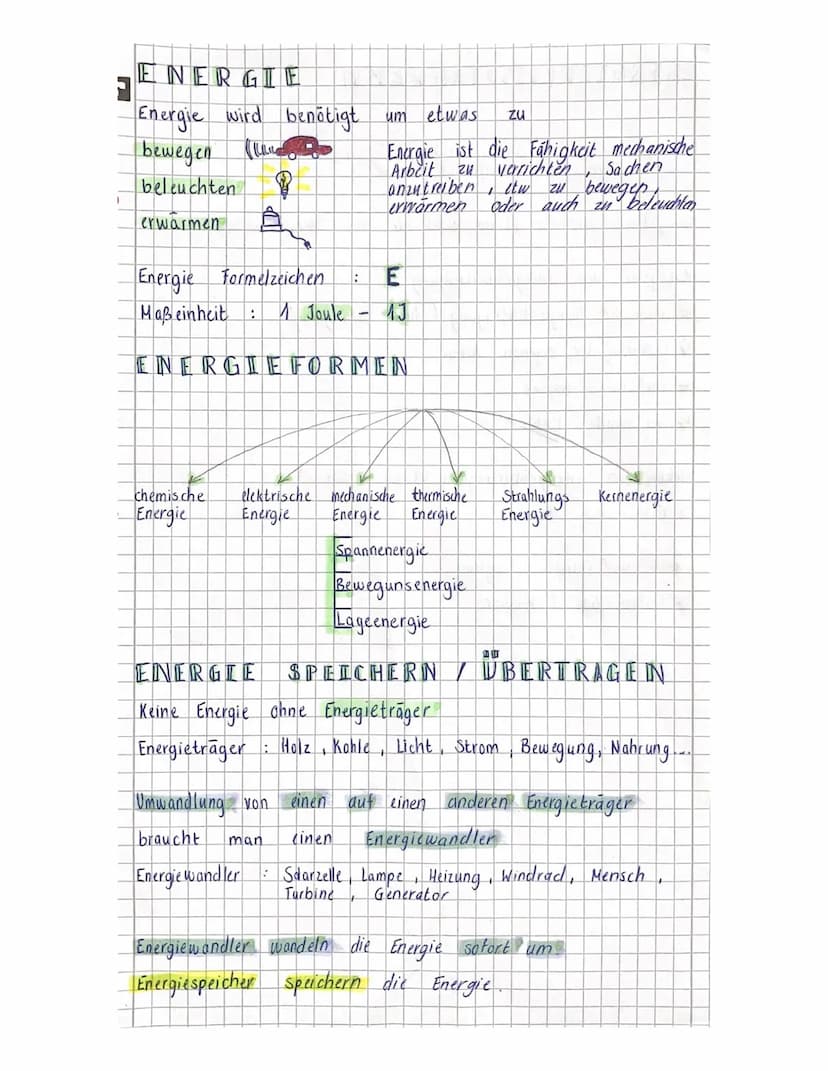 ENERGIE
Energie wird benötigt um etwas zu
bewegen
beleuchten
erwärmen
Energie ist die Fähigkeit mechanische
Arbeit zu vorichten, Sachen
anzutreiben, etw zu bewegen,
erwärmen oder auch zu beleuchten
Energie Formelzeichen : E
Maßeinheit : 1 Joule - 1J
ENERGIEFORMEN
chemische Energie
elektrische Energie
mechanische Energie
thermische Energie
Strahlungs Energie
Kernenergie
Spannenergie
Bewegunsenergie
Lageenergie
ENERGIE SPEICHERN / ÜBERTRAGEN
Keine Energie ohne Energieträger
Energieträger : Holz, Kohle, Licht, Strom, Bewegung, Nahrung...
Umwandlung von einen auf einen anderen Energieträger
braucht man einen Energiewandler
Energiewandler : Solarzelle, Lampe, Heizung, Windrad, Mensch,
Turbine, Generator
Energiewandler wandeln die Energie sofort um
Energiespeicher speichern die Energie.